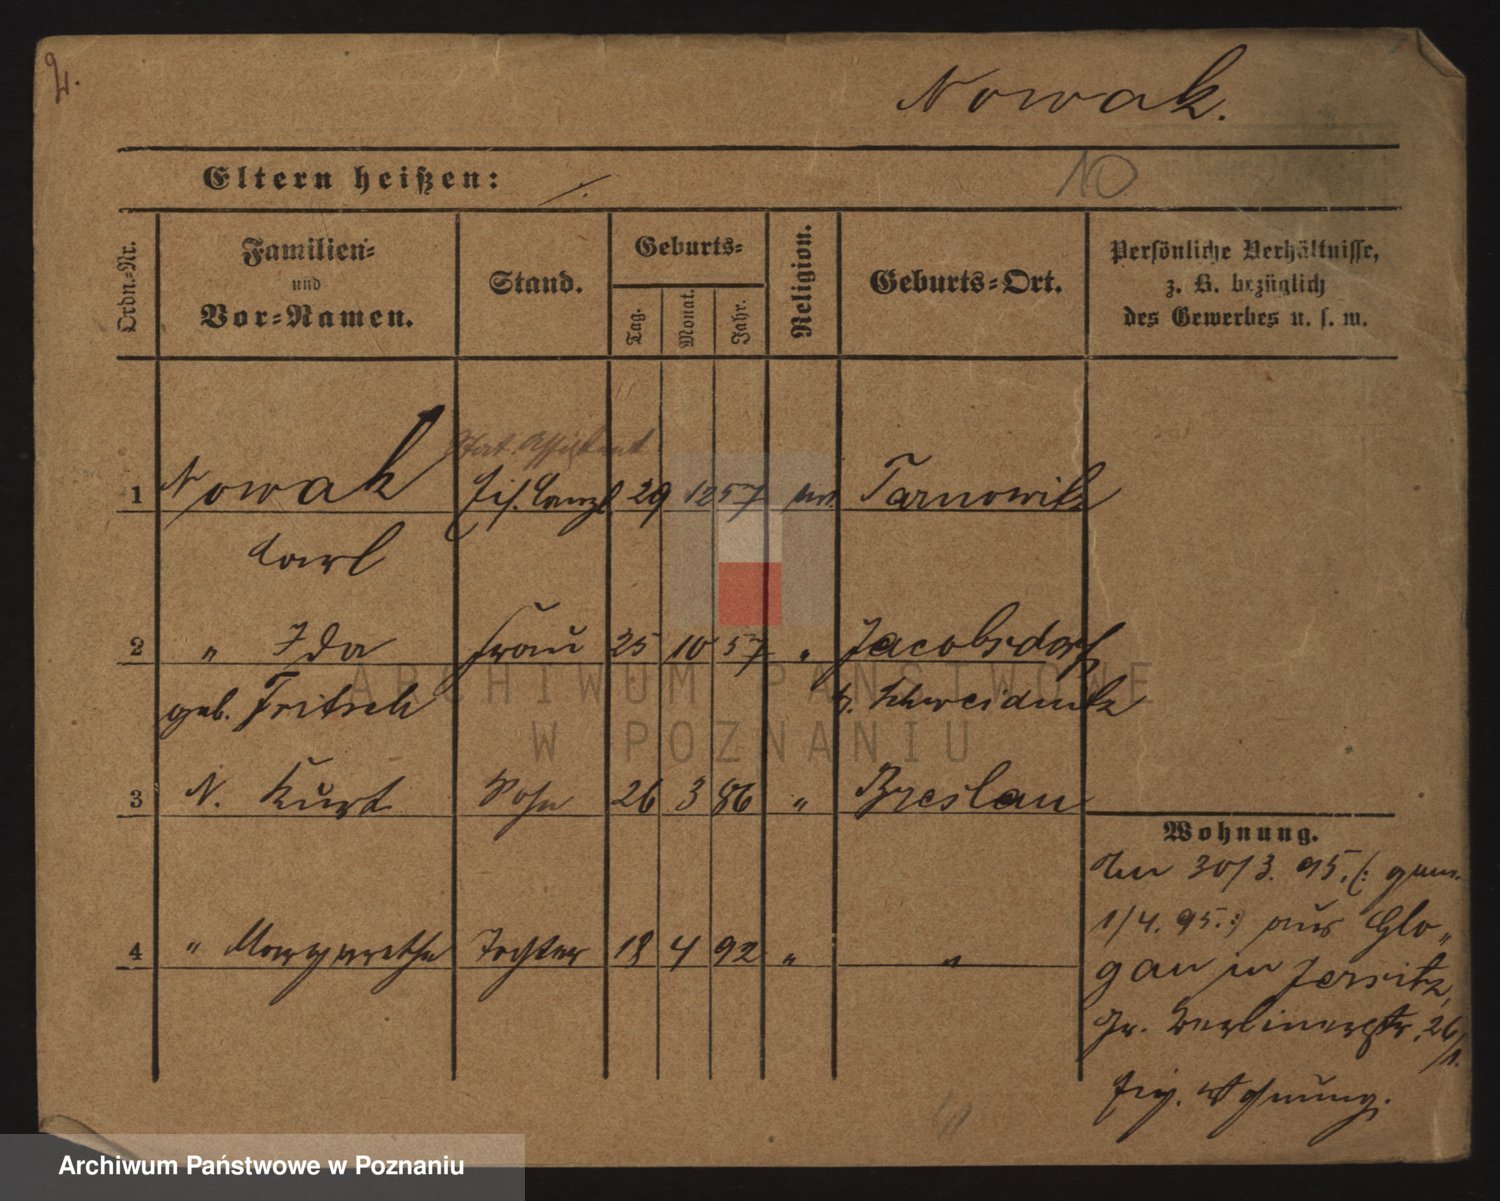 Nowak.
10
Eltern heißen: ./.
Ordn.-Nr.
Familien-
und
Vor-Namen.
Stand.
Geburts-
Tag.
Monat.
Jahr.
Religion.
Geburts-Ort.
Persönliche Verhältnisse,
z. B. bezüglich
des Gewerbes u. s. w.
Stat. Assistent
1 Nowak 29 12 57 Tarnowitz
Carl
2 " Ida Frau 25 10 57 " Jacobsdorf
geb. Fritsch b. Schweidnitz
3 N. Kurt Sohn 26 3 86 " Breslau
4 " Margarethe Tochter 18 4 92 " "
Wohnung.
Am 30/3. 95. (: gem.
1/4. 95. :) aus Glo-
gau in Jersitz,
Gr. Berlinerstr. 26/1.
Eig. Wohnung.
ARCHIWUM PAŃSTWOWE
W POZNANIU
Archiwum Państwowe w Poznaniu